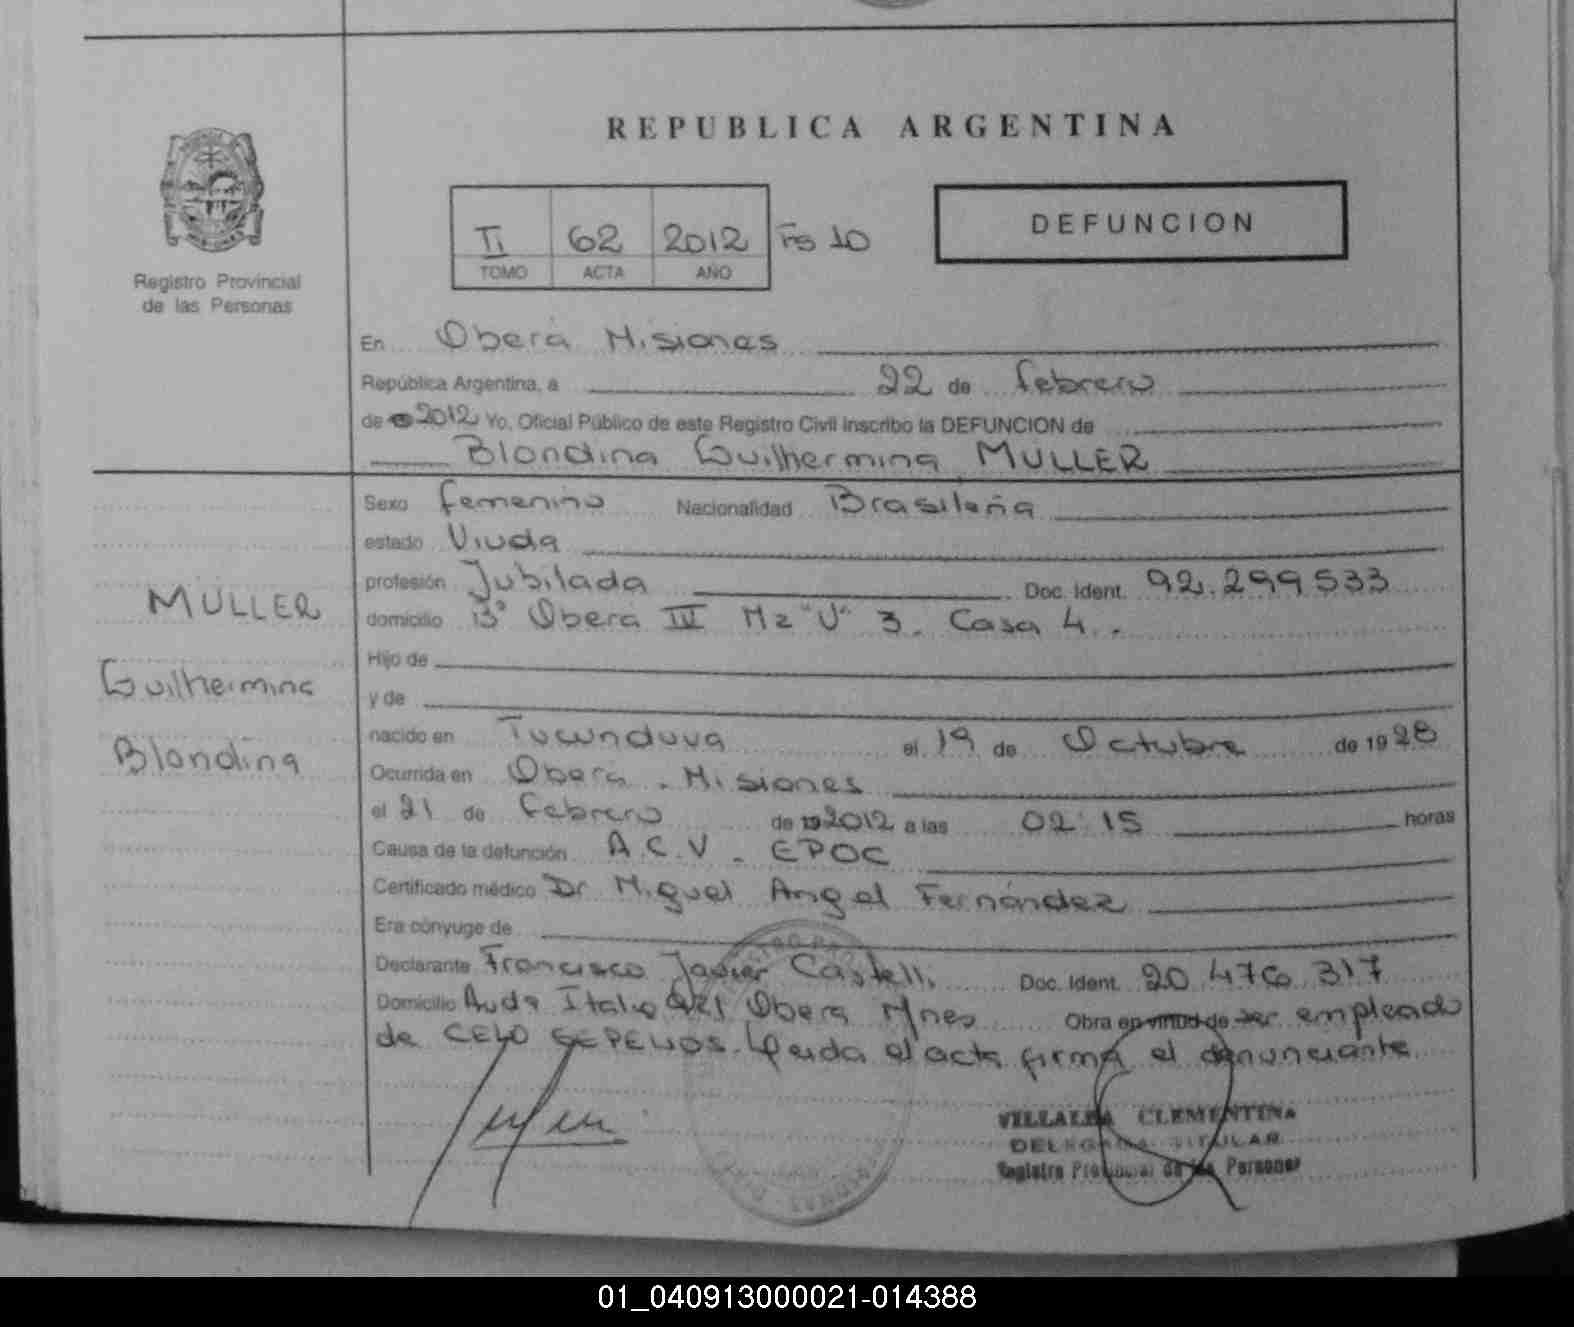 REPUBLICA ARGENTINA
Registro Provincial
de las Personas
TI 62 2012 Fs 10
TOMO ACTA AÑO
DEFUNCION
En Oberá Misiones
República Argentina, a 22 de febrero
de 2012 Yo, Oficial Público de este Registro Civil inscribo la DEFUNCION de
Blondina Guilhermina MULLER
MULLER
Guilhermina
Blondina
Sexo femenino Nacionalidad Brasileña
estado Viuda
profesión Jubilada Doc. Ident. 92.299.533
domicilio B° Oberá III Mz "U" 3. Casa 4.
Hijo de
y de
nacido en Tucunduva el 19 de Octubre de 1928
Ocurrida en Oberá. Misiones
el 21 de febrero de 2012 a las 02:15 horas
Causa de la defunción A.C.V. EPOC
Certificado médico Dr. Miguel Angel Fernández
Era cónyuge de
Declarante Francisco Javier Castelli Doc. Ident. 20.476.317
Domicilio Avda Italia Oberá Mnes Obra en virtud de ser empleado
de SEPELIOS. Leida el acta firma el denunciante
VILLALBA CLEMENTINA
DELEGADA TITULAR
Registro Provincial de las Personas
01_040913000021-014388